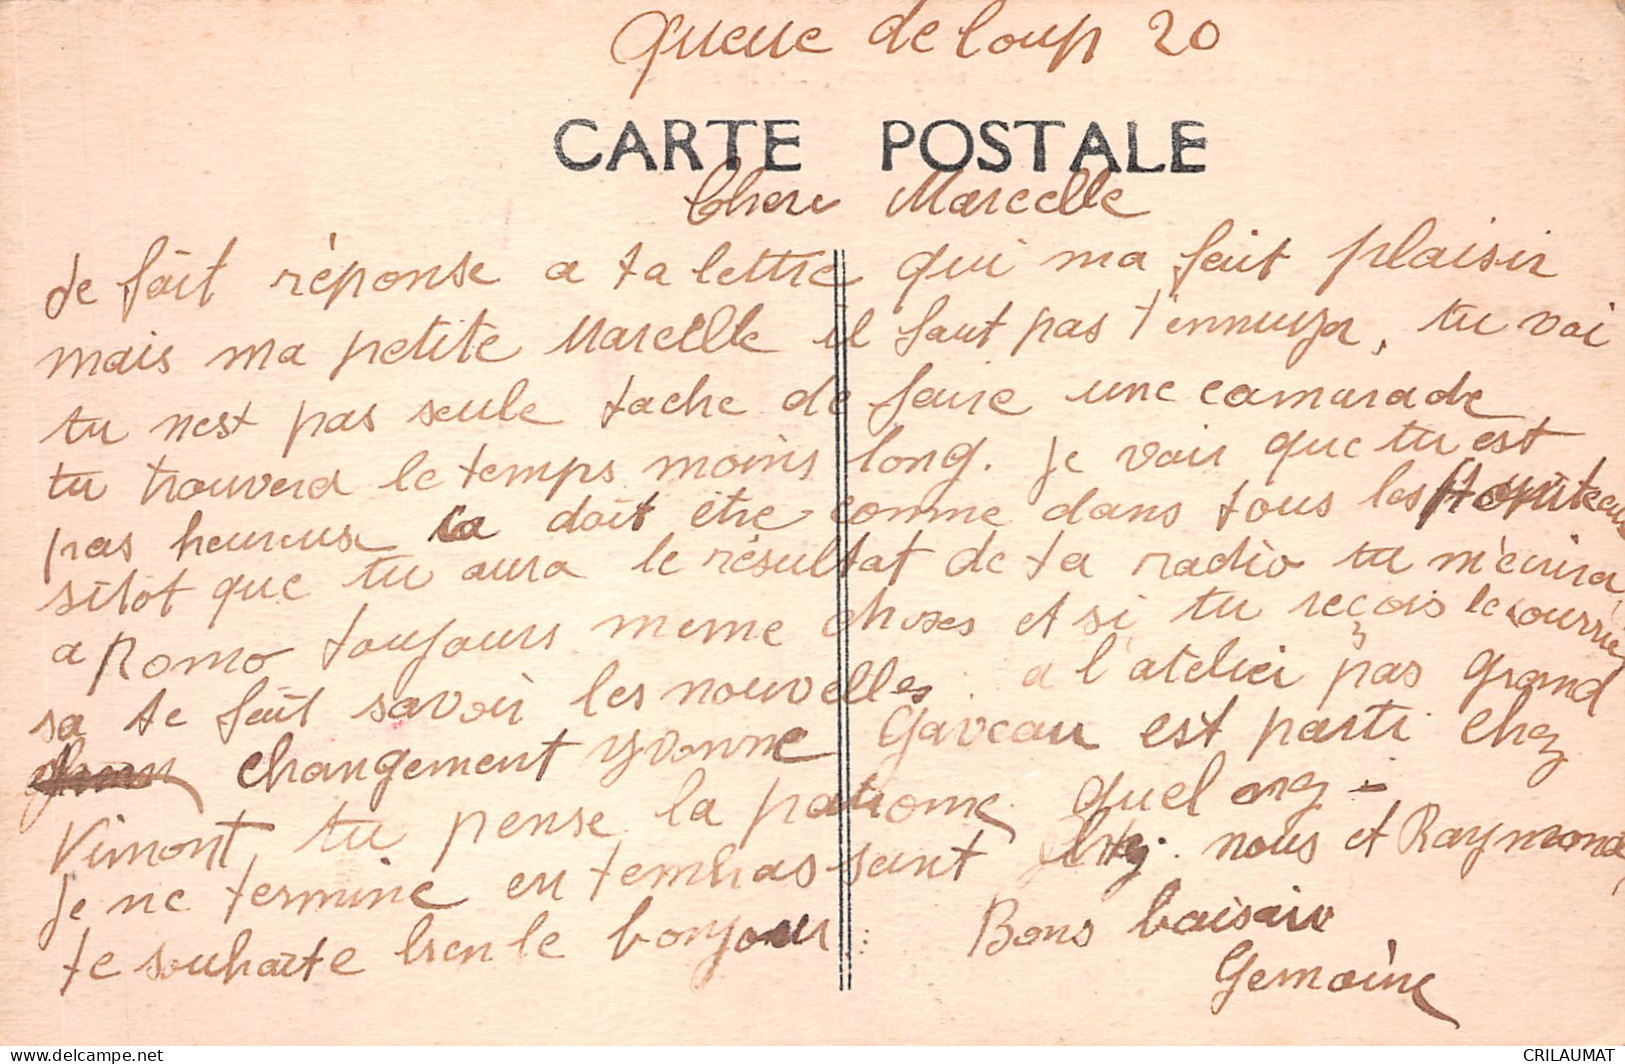 Queue de loup 20
CARTE POSTALE
Chere Marcelle
Je fait réponse a ta lettre qui ma fait plaisir
mais ma petite Marcelle il faut pas t'ennuyer, tu voi
tu nest pas seule tache de faire une camarade
tu trouvera le temps moins long. Je vois que tu est
pas heureuse ca doit être comme dans tous les
sitot que tu aura le résultat de ta radio tu m'écrira
a Romo toujours meme choses et si tu reçois le courrie
sa te fait savoir les nouvelles. a l'atelier pas grand
changement Yvonne Gaveau est parti chez
Vimont, tu pense la patrone quel
Je ne termine en tembrassant chez nous et Raymond,
te souhaite bien le bonjour. Bons baisair
Germaine
CRILAUMAT